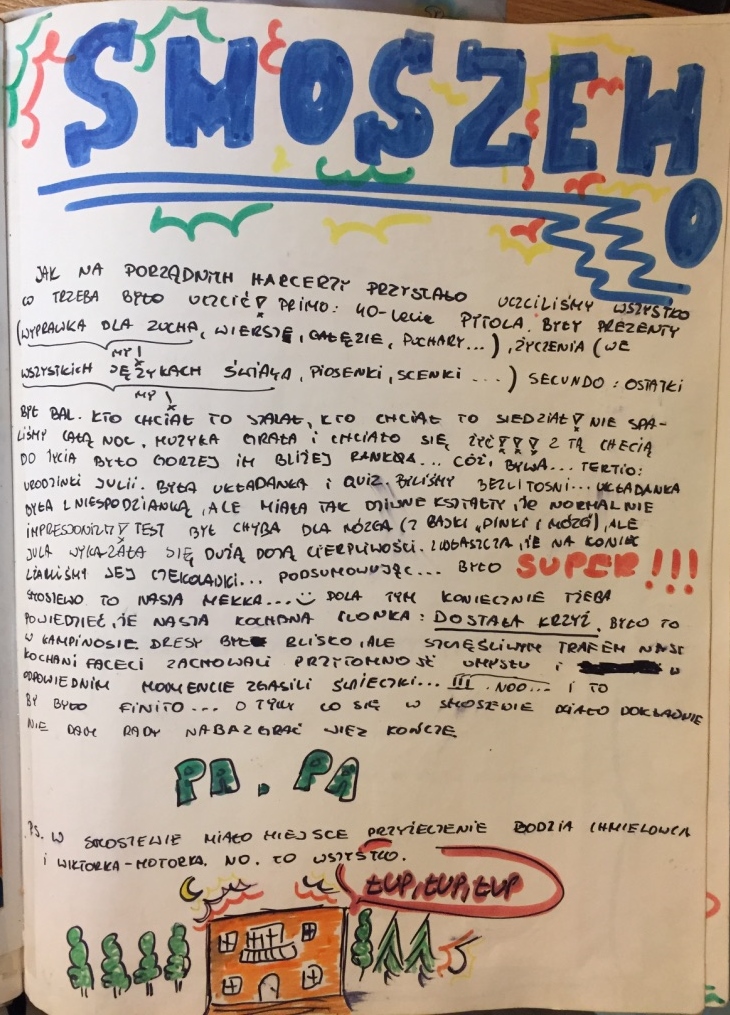 SMOSZEWO
JAK NA PORZĄDNYCH HARCERZY PRZYSTAŁO UCZCILIŚMY WSZYSTKO
CO TRZEBA BYŁO UCZCIĆ! PRIMO: 40-lecie PYTOLA. BYŁY PREZENTY
(WYPRAWKA DLA ZUCHA, WIERSZE, GAŁĘZIE, PUCHARY...), ŻYCZENIA (WE
MY!
WSZYSTKICH JĘZYKACH ŚWIATA, PIOSENKI, SCENKI ...) SECUNDO: OSTATKI
MY!
BYŁ BAL. KTO CHCIAŁ TO SZALAŁ, KTO CHCIAŁ TO SIEDZIAŁ! NIE SPA-
LIŚMY CAŁĄ NOC. MUZYKA GRAŁA I CHCIAŁO SIĘ ŻYĆ!!! Z TĄ CHĘCIĄ
DO ŻYCIA BYŁO GORZEJ IM BLIŻEJ RANKA... CÓŻ, BYWA... TERTIO:
URODZINKI JULII. BYŁA UKŁADANKA I QUIZ. BYLIŚMY BEZLITOSNI... UKŁADANKA
BYŁA Z NIESPODZIANKĄ, ALE MIAŁA TAK DZIWNE KSZTAŁTY, ŻE NORMALNIE
! TEST BYŁ CHYBA DLA MÓZGA (Z BAJKI "PINKI I MÓZG), ALE
JULA WYKAZAŁA SIĘ DUŻĄ DOZĄ CIERPLIWOŚCI. ZWŁASZCZA, ŻE NA KONIEC
JEJ CZEKOLADKI... PODSUMOWUJĄC... BYŁO SUPER!!!
SMOSZEWO TO NASZA MEKKA... POZA TYM KONIECZNIE TRZEBA
POWIEDZIEĆ, ŻE NASZA KOCHANA CZONKA: DOSTAŁA KRZYŻ. BYŁO TO
W KAMPINOSIE. DRESY BYŁY BLISKO, ALE SZCZĘŚLIWYM TRAFEM NASI
KOCHANI FACECI ZACHOWALI PRZYTOMNOŚĆ UMYSŁU I W
ODPOWIEDNIM MOMENCIE ZGASILI ŚWIECZKI... !!! NOO... I TO
BY BYŁO FINITO... O TYM CO SIĘ W SMOSZEWIE DZIAŁO DOKŁADNIE
NIE DAM RADY NABAZGRAĆ WIĘC KOŃCZĘ
PA. PA
PS. W SMOSZEWIE MIAŁO MIEJSCE PRZYRZECZENIE BODZIA CHMIELOWCA
I WIKTORKA-MOTORKA. NO. TO WSZYSTKO.
ŁUP, ŁUP, ŁUP